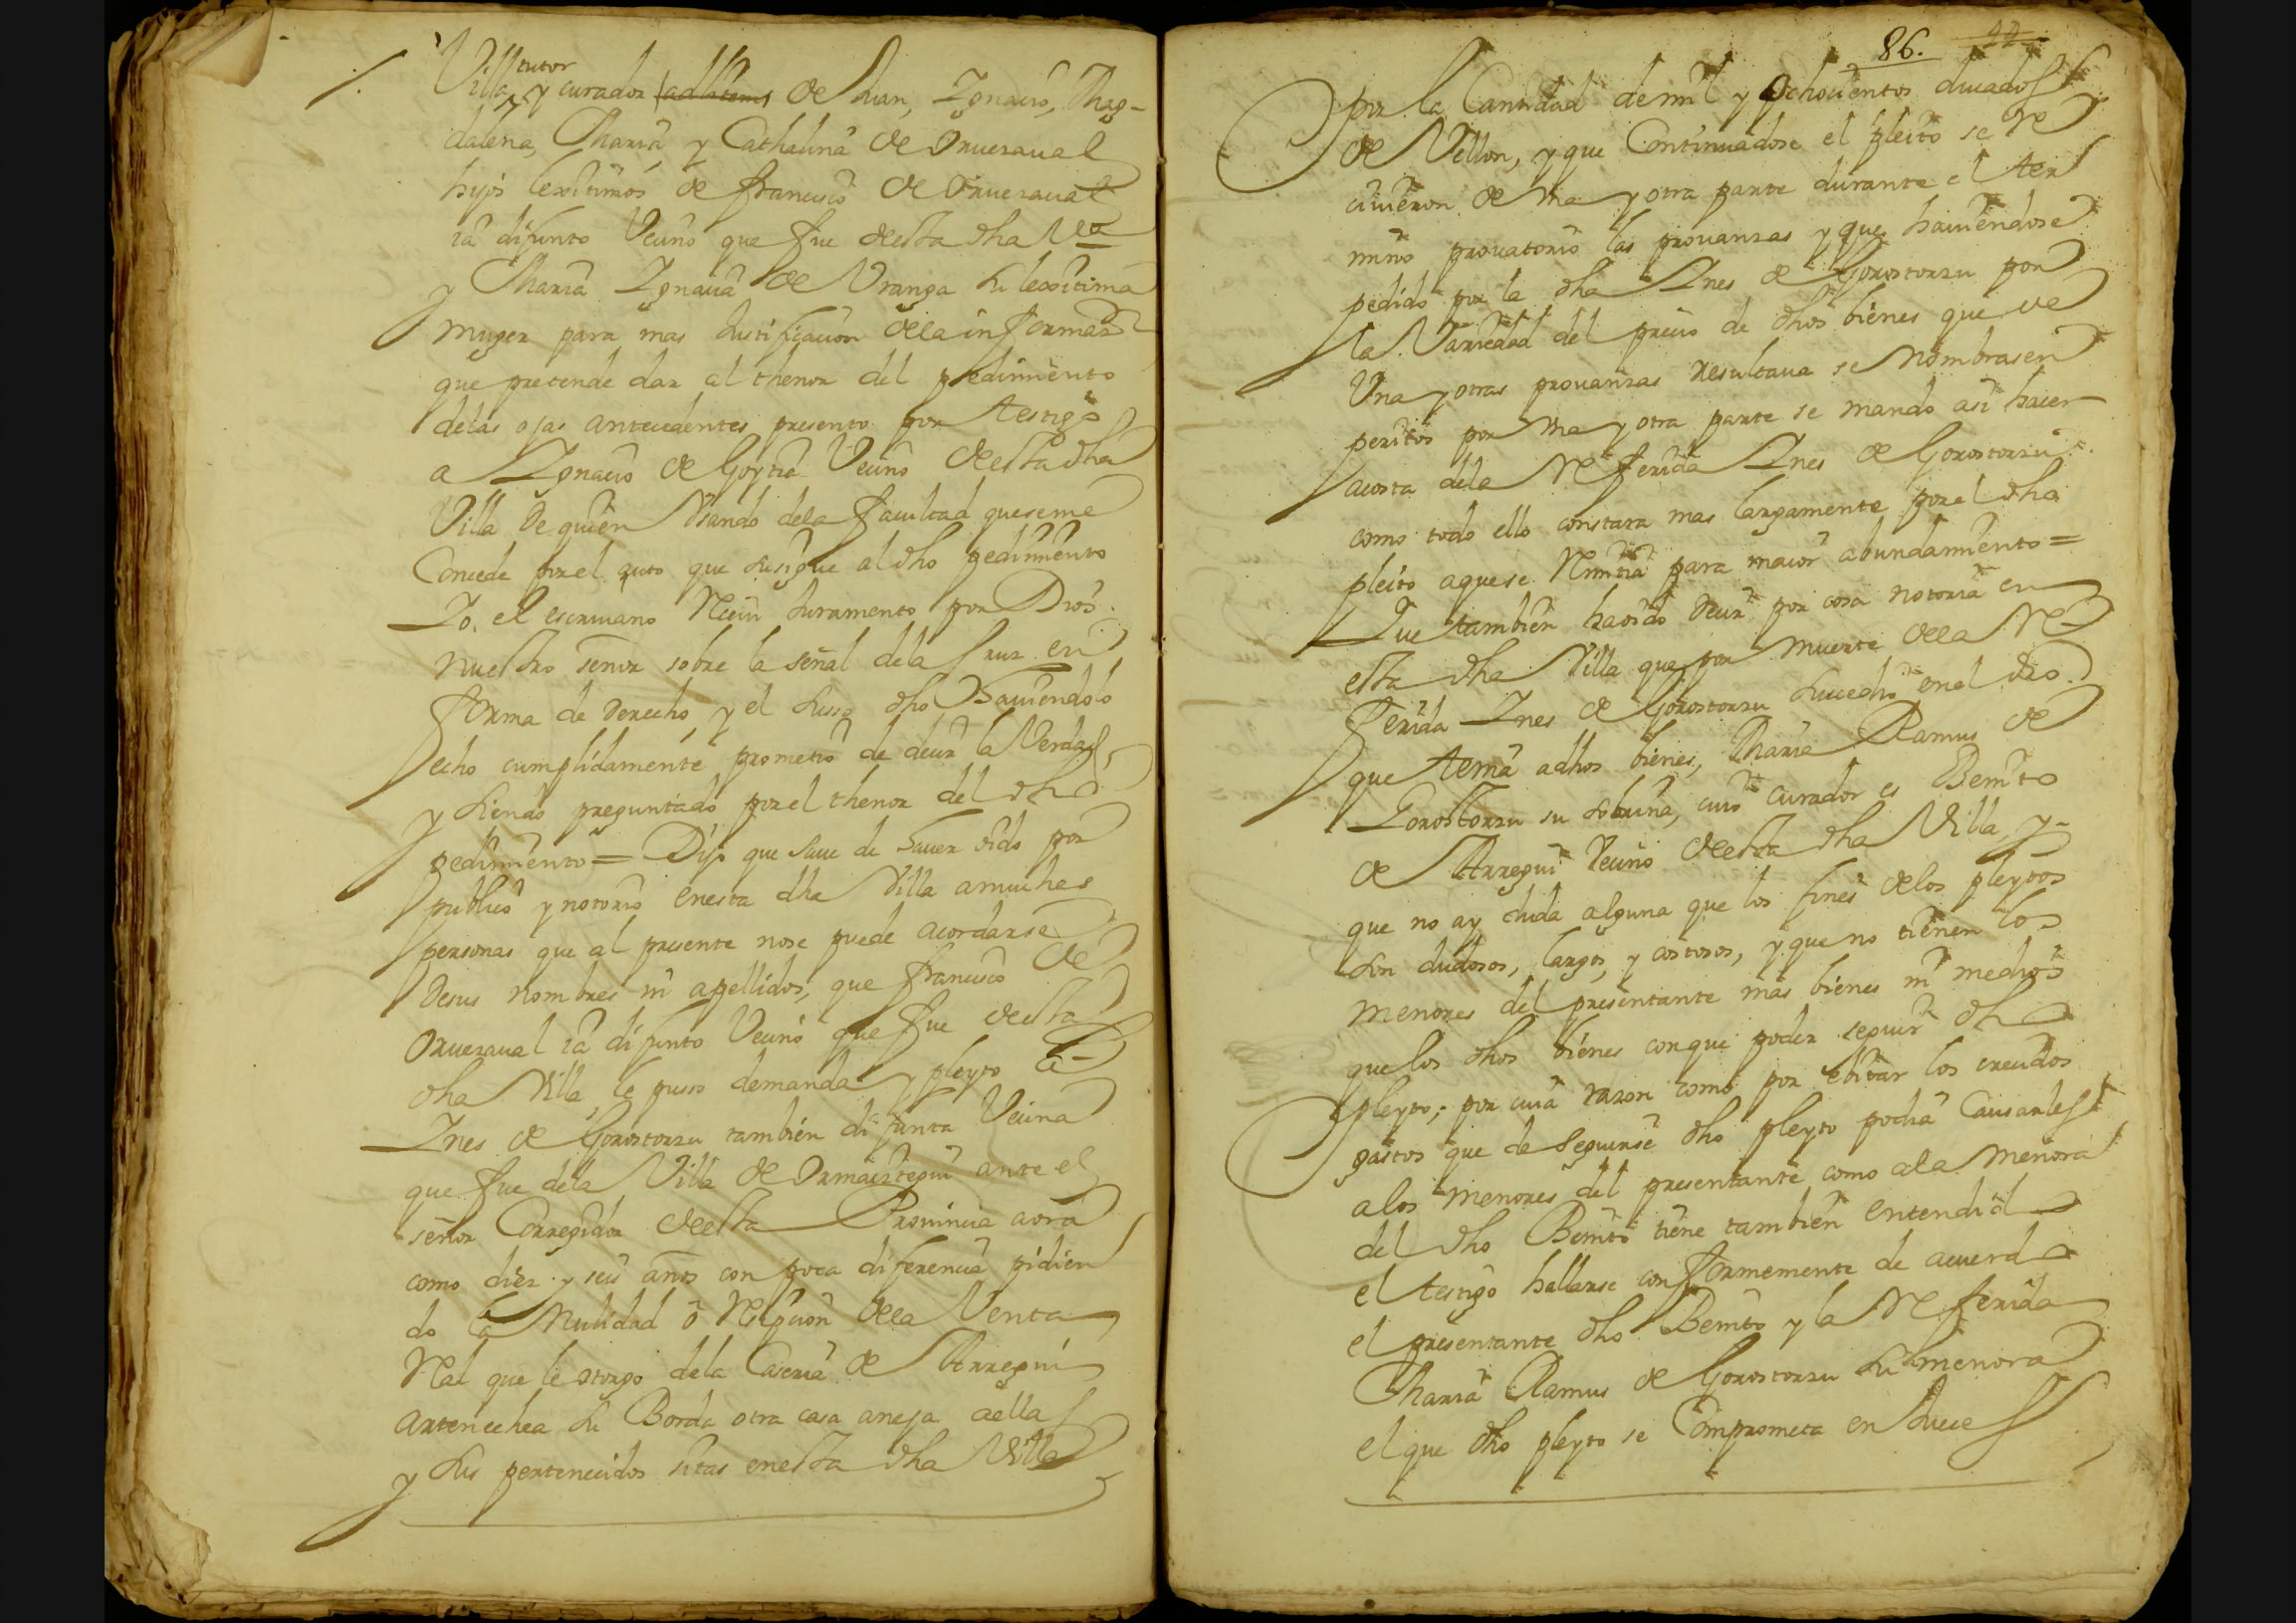 Villa, tutor y curador ad litem de Juan, Ygnacio, Mag-
dalena, Maria y Cathalina de Oruesaual
hijos lexitimos de francisco de Oruesaual
ia difunto Vecino que fue desta dha Va
y Maria Ygnacia de Vranga su lexitima
muger para mas Justificacion dela informaon
que pretende dar al thenor del pedimiento
delas ojas antecedentes presento por testigo
a Ygnacio de Goytia Vecino desta dha
Villa de quien Vsando dela facultad queseme
Concede porel auto que susigue al dho pedimiento
Yo el escriuano Reciui Juramento por Dios
nuestro señor sobre la señal dela Cruz en
forma de derecho, y el susso dho hauiendolo
echo cumplidamente prometio de decir la Verdad,
y siendo preguntado porel thenor del dho
pedimiento = Dijo que saue de hauer oido por
publico y notorio enesta dha Villa amuchas
personas que al presente nose puede acordarse
desus nombres ni apellidos, que francisco de
Oruesaual ia difunto Vecino que fue desta
dha Villa le puso demanda y pleyto a
Ynes de Gorostorzu tambien difunta Vecina
que fue dela Villa de Ormaiztegui ante el
señor Corregidor desta Prouincia aora
como diez y seis años con poca diferencia pidien
do la Nulidad o Resçicion dela Venta
Real que le otorgo dela Caseria de Arregui
artenechea su Borda otra casa aneja aella
y sus pertenecidos sitas enesta dha Villa
86. 42
por la Cantidad de mil y ochocientos ducados
de Vellon, y que Continuadose el pleito se Re
ciuieron de vna y otra parte durante el ter
mino prouatorio las prouanzas y que hauiendose
pedido por la dha Ynes de Gorostorzu por
la Variedad del precio de dhos bienes que de
Vna y otras prouanzas resultaua se Nombrasen
peritos por vna y otra parte se mando asi hacer
acosta dela Referida Ynes de Gorostorzu
como todo ello constara mas largamente porel dho
pleito aquese Rimitia para maior abundamiento =
Que tambien ha oido decir por cosa notoria en
esta dha Villa que por muerte dela Re
ferida Ynes de Gorostorzu sucedio enel dro
que tenia adhos bienes, Maria Ramus de
Gorostorzu su sobrina, cuio curador es Benito
de Arregui Vecino desta dha Villa, y
que no ay duda alguna que los fines delos pleytos
son dudosos, largos, y costosos, y que no tienen los
menores del presentante mas bienes ni medios
que los dhos bienes conque poder seguir dho
pleyto; por cuia razon como por ebitar los crecidos
gastos que de seguirse dho pleyto podia Causarles
alos menores del presentante como ala menora
del dho Benito tiene tambien entendido
el testigo hallarse conformemente de acuerdo
el presentante dho Benito y la Referida
Maria Ramus de Gorostorzu su menora
el que dho pleyto se Comprometa en Jueces